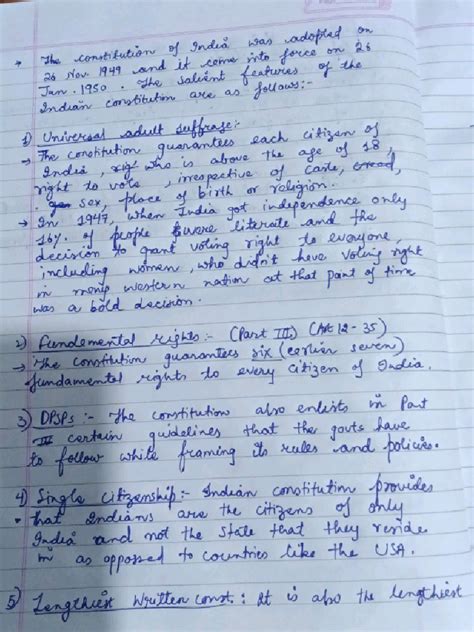 → The constitution of India was adopted on
26 Nov. 1949 and it came into force on 26
Jan. 1950. The salient features of the
Indian constitution are as follows:-
1) Universal adult suffrage:-
→ The constitution guarantees each citizen of
India, who is above the age of 18,
right to vote, irrespective of caste, creed,
sex, place of birth or religion.
→ In 1947, when India got independence only
16% of people were literate and the
decision to grant voting right to everyone,
including women, who didn't have voting right
in many western nation at that part of time
was a bold decision.
2) Fundemental rights:- (Part III) (Art 12-35)
→ The constitution guarantees six (earlier seven)
fundamental rights to every citizen of India.
3) DPSPs :- The constitution also enlists in Part
IV certain guidelines that the govts have
to follow while framing its rules and policies.
4) Single citizenship:- Indian constitution provides
that Indians are the citizens of only
India and not the state that they reside
in as opposed to countries like the USA.
5) Lengthiest written const.: It is also the lengthiest